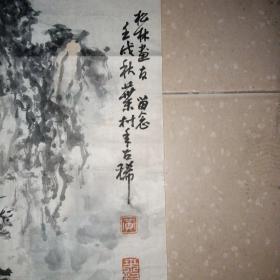 松林画友 留念
壬戌秋叶村年古稀